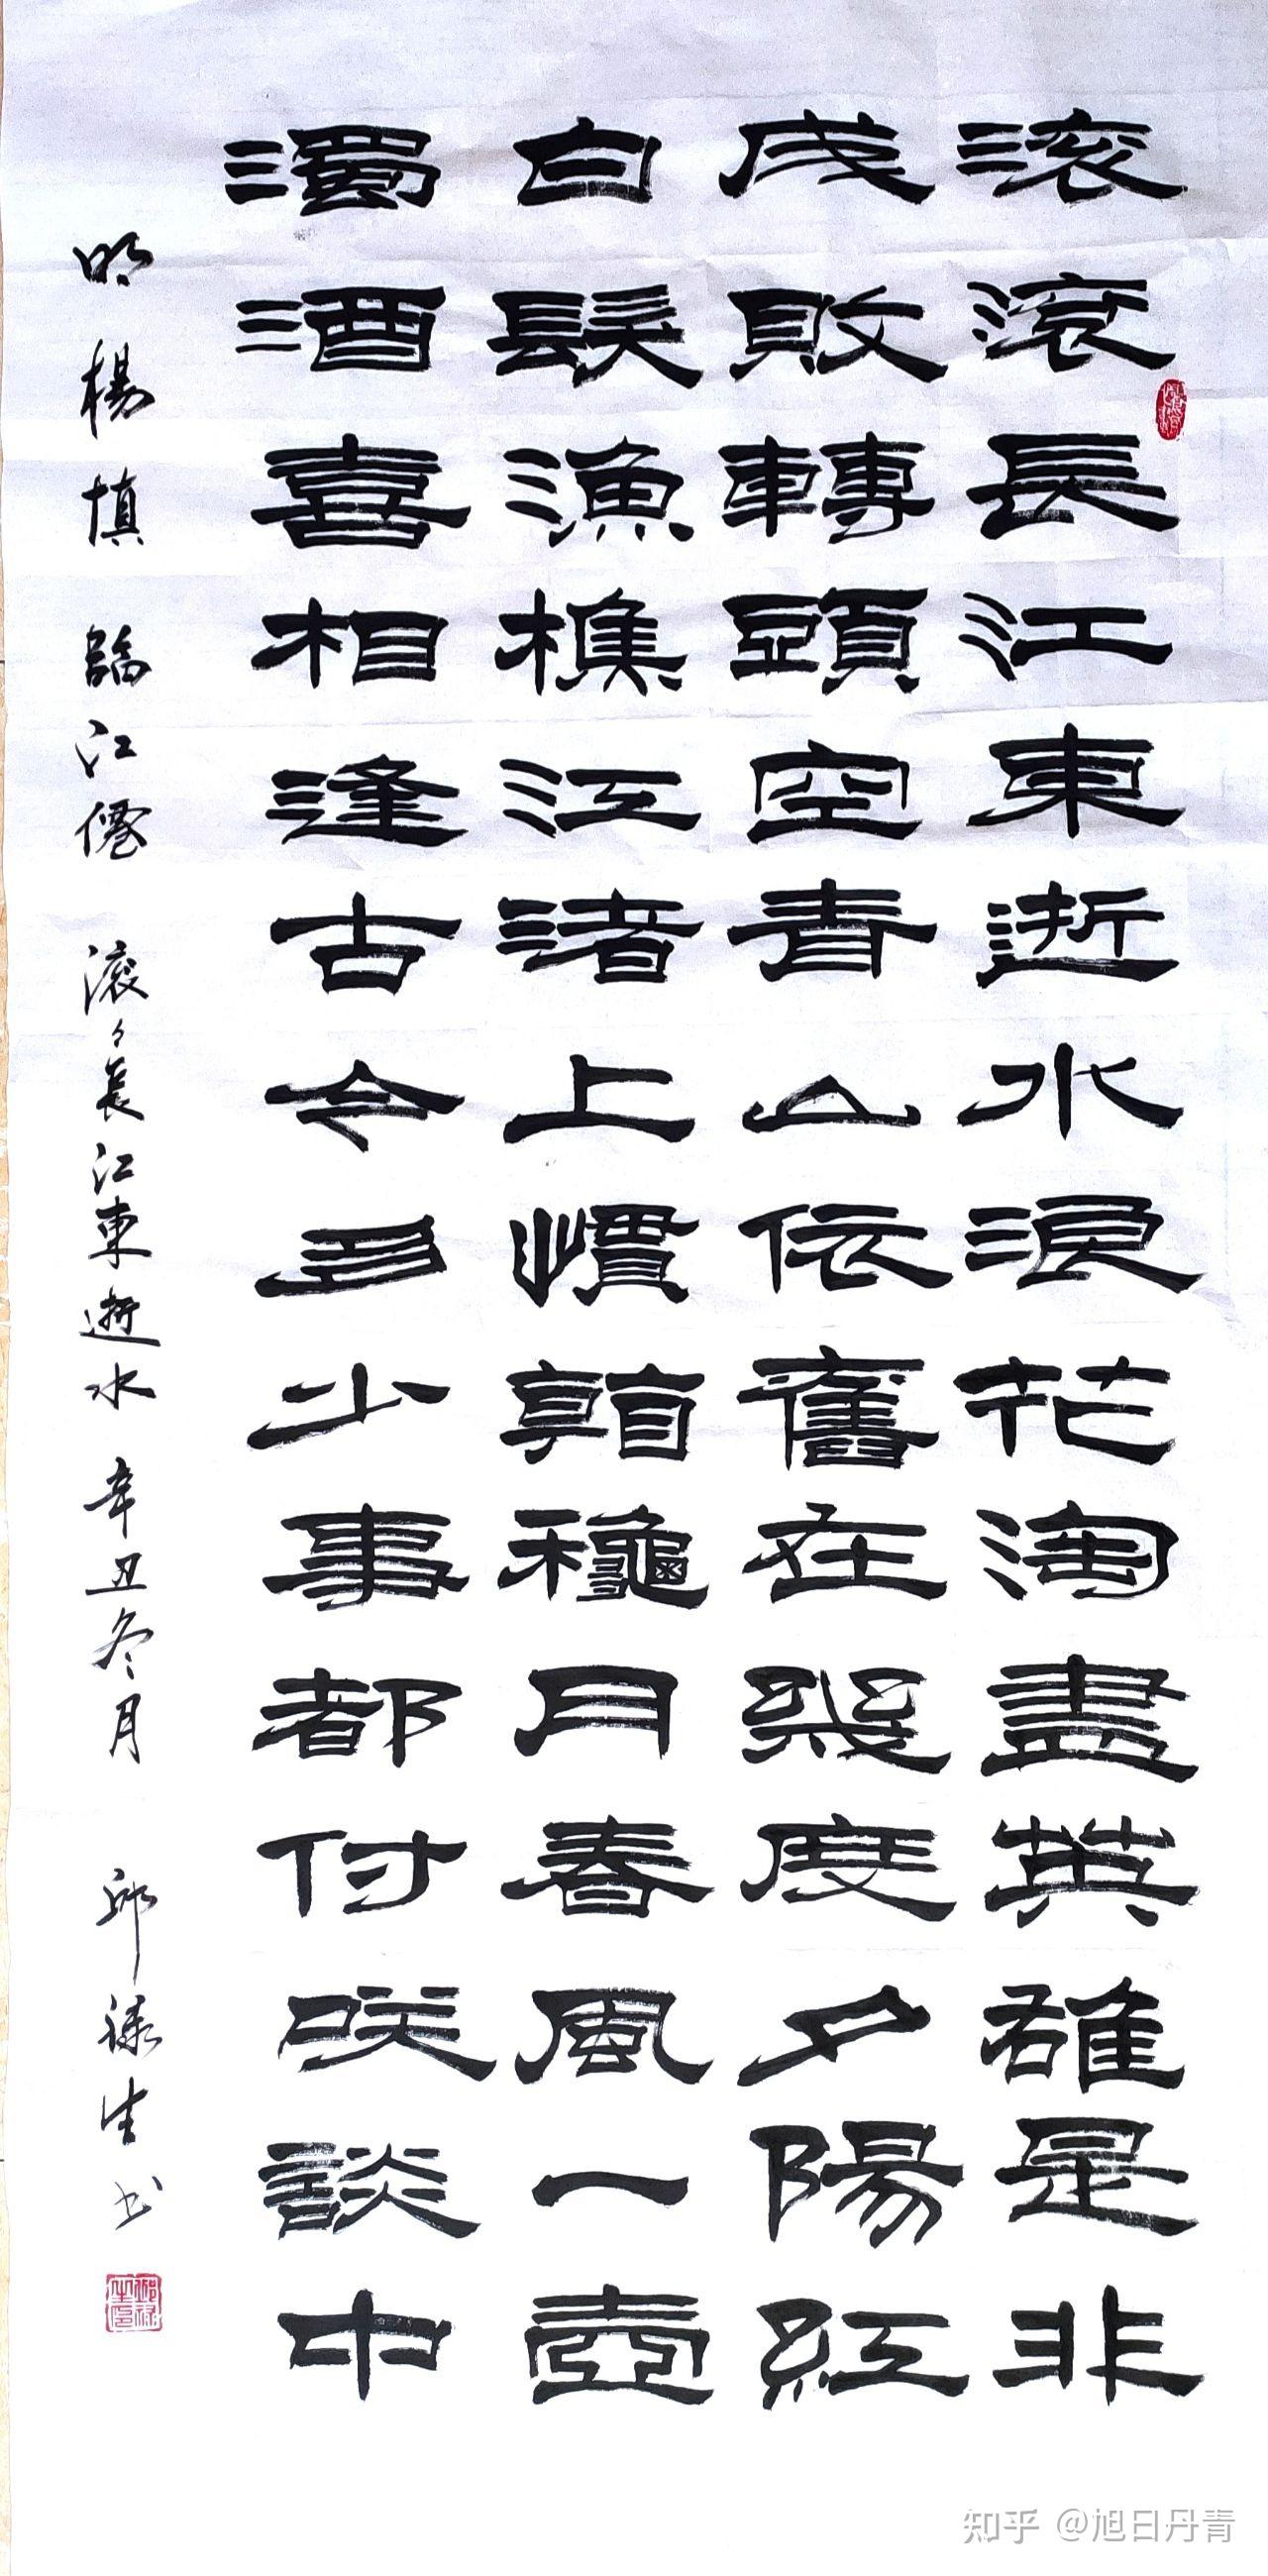 滚滚長江東逝水浪花淘盡英雄是非
成敗轉頭空青山依舊在幾度夕陽紅
白髮漁樵江渚上慣看秋月春風一壺
濁酒喜相逢古今多少事都付咲談中
明楊慎 臨江僊 滚々長江東逝水 辛丑冬月 邱禄生书
知乎 @旭日丹青